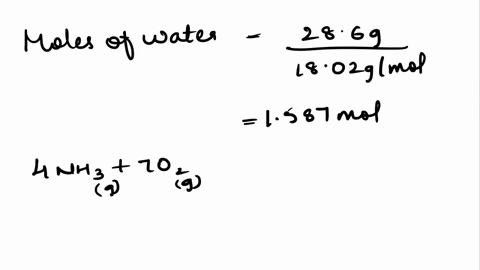 Moles of water = 28.6g / 18.02g/mol
= 1.587 mol
4 NH3 (g) + 7O2 (g)